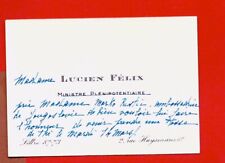 Madame LUCIEN FÉLIX
MINISTRE PLÉNIPOTENTIAIRE
prie Madame Marko Ristic, ambassadrice
de Yougoslavie de bien vouloir lui faire
l'honneur de venir prendre une tasse
de Thé le Mardi 16 Mars
Littré 8773
2, rue Huysmans VIe